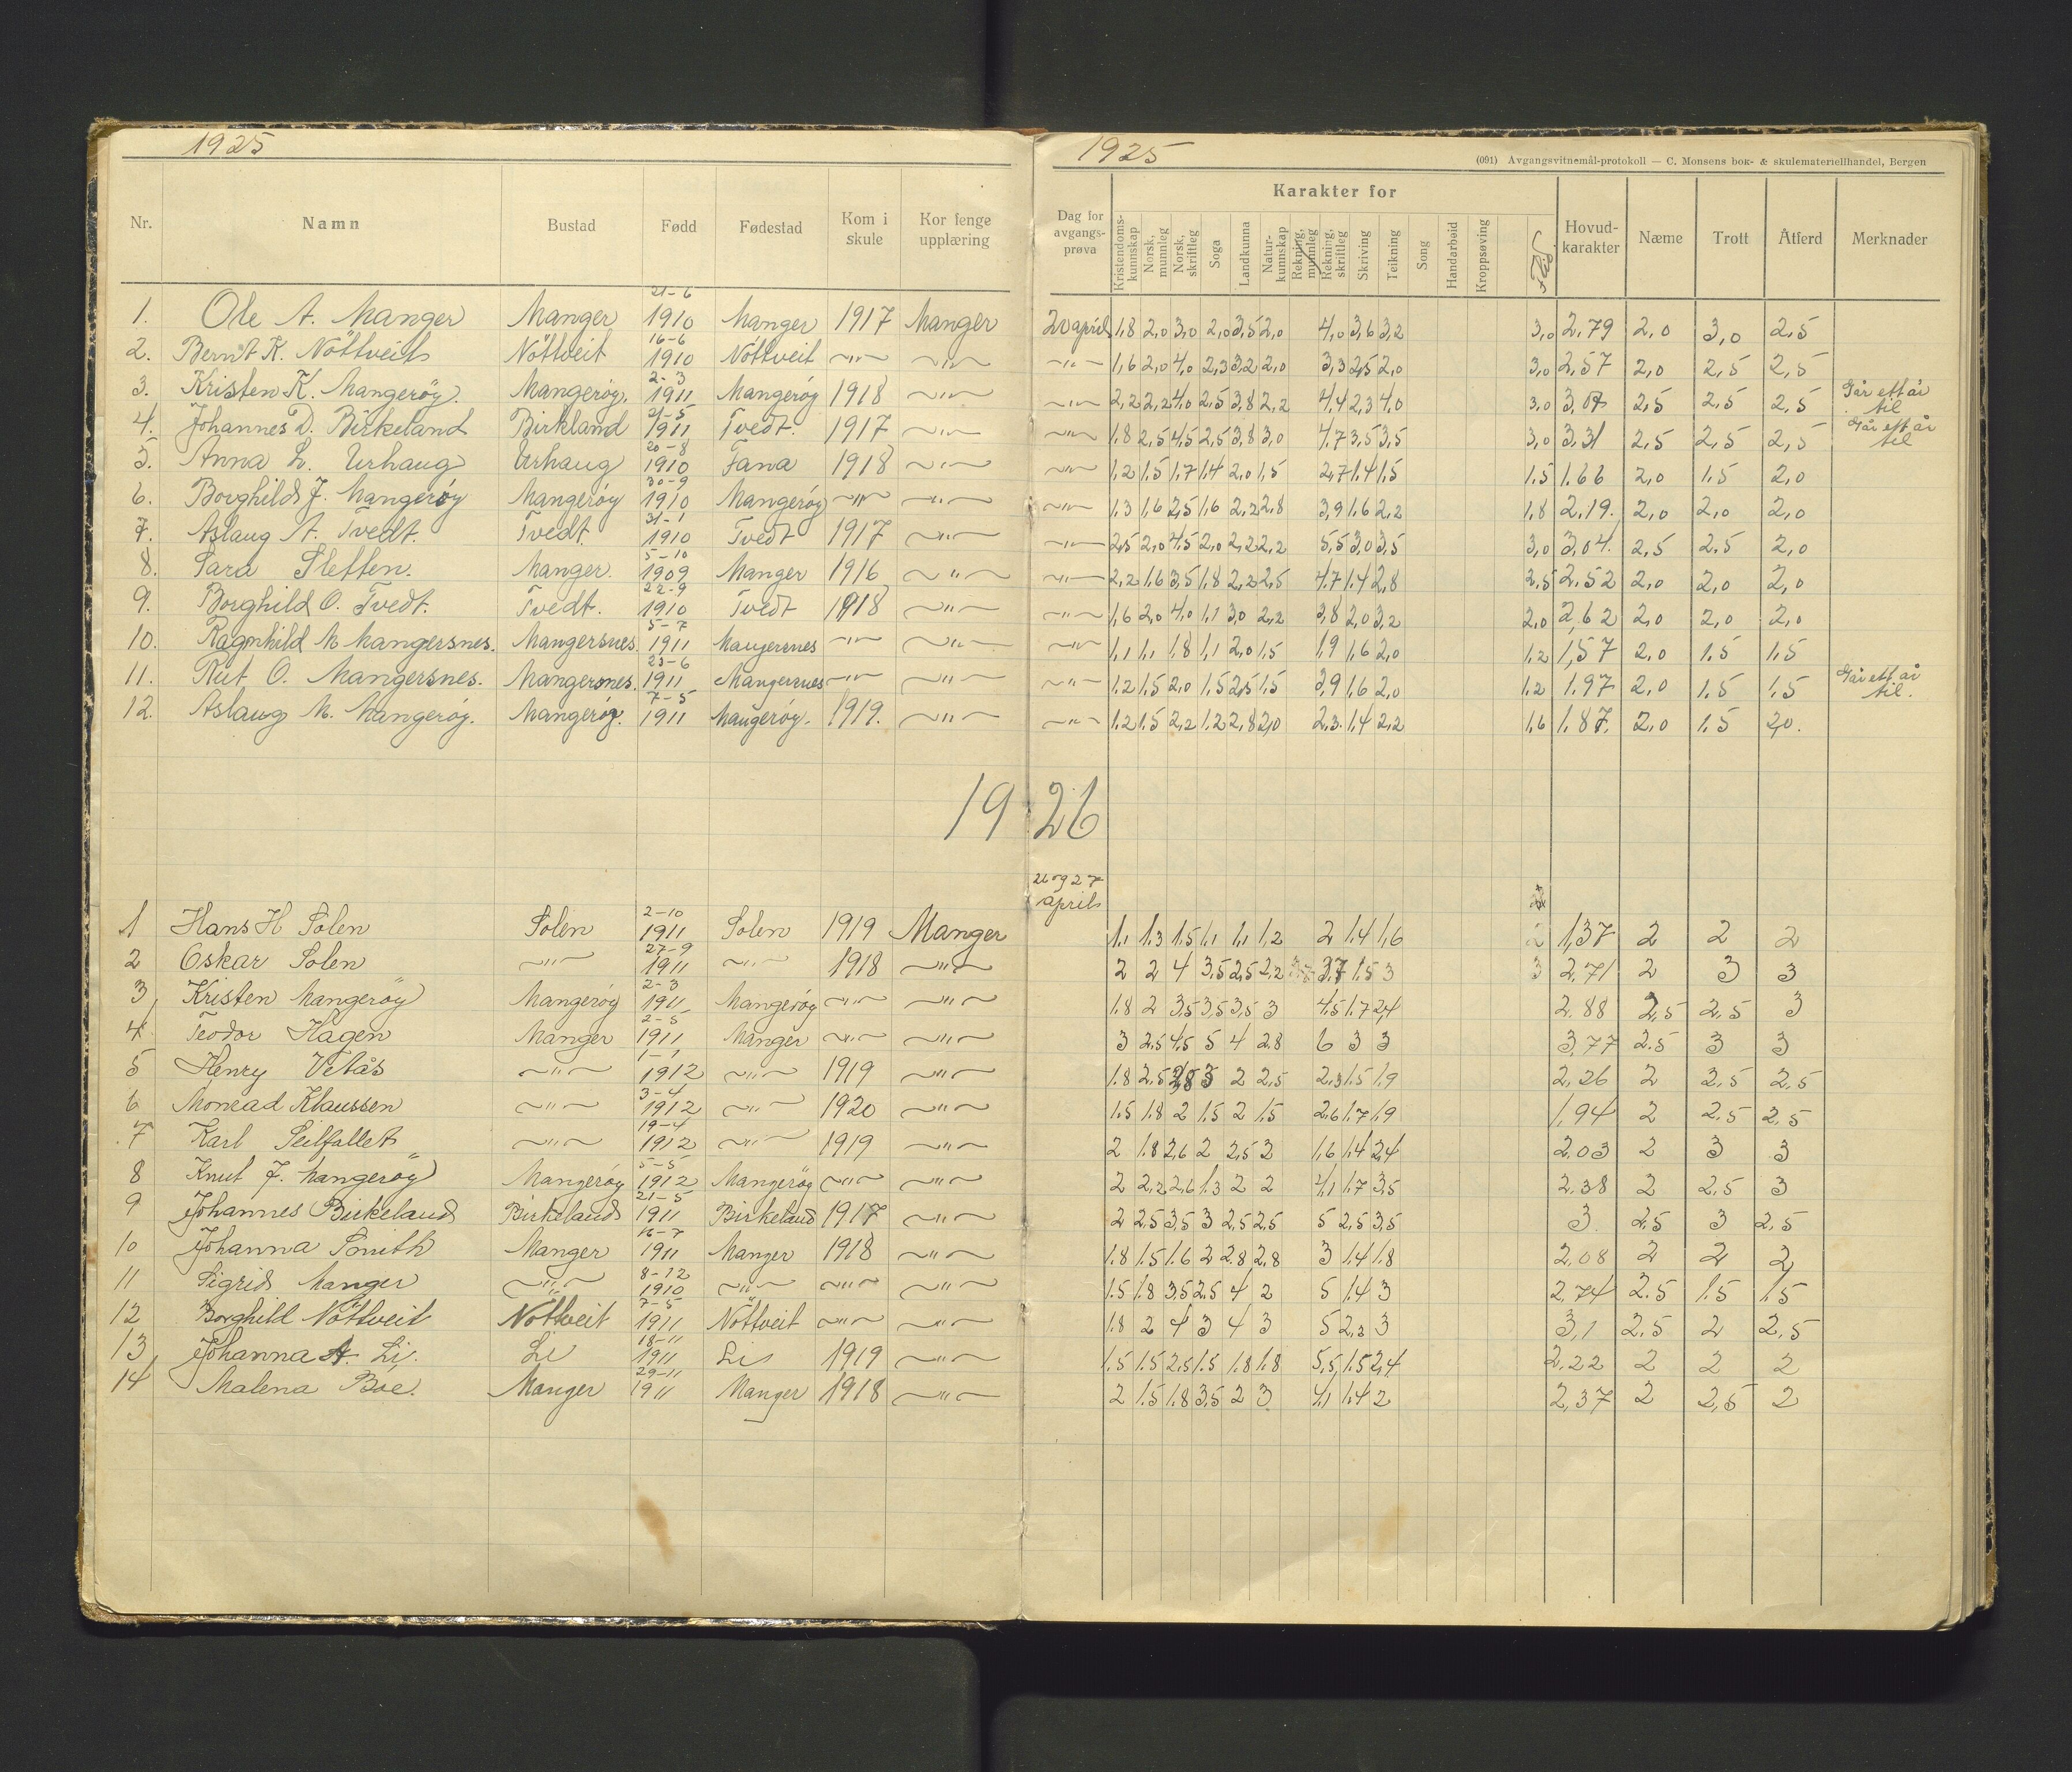 1925
1925
(091) Avgangsvitnemål-protokoll — C. Monsens bok- & skulemateriellhandel, Bergen
Nr. Namn Bustad Fødd Fødestad Kom i skule Kor fenge upplæring Dag for avgangsprøva Karakter for Hovudkarakter Næme Trott Åtferd Merknader
Kristendomskunnskap Norsk, munnleg Norsk, skriftleg Soga Landkunna Naturkunnskap Rekning, munnleg Rekning, skriftleg Skriving Teikning Song Handarbeid Kroppsøving Flid
1. Ole A. Manger Manger 21-6 1910 Manger 1917 Manger 20 april 1,8 2,0 3,0 2,0 3,5 2,0 4,0 3,6 3,2 3,0 2,79 2,0 3,0 2,5
2. Bernt K. Nöttveit Nöttveit 16-6 1910 Nöttveit —"— —"— —"— 1,6 2,0 4,0 2,3 3,2 2,0 3,3 2,5 2,0 3,0 2,57 2,0 2,5 2,5
3. Kristen K. Mangeröy. Mangeröy. 2-3 1911 Mangeröy 1918 —"— —"— 2,2 2,2 4,0 2,5 3,8 2,2 4,4 2,3 4,0 3,0 3,07 2,5 2,5 2,5 Går ett år til
4. Johannes D. Birkeland Birkland 21-5 1911 Tvedt. 1917 —"— —"— 1,8 2,5 4,5 2,5 3,8 3,0 4,7 3,5 3,5 3,0 3,31 2,5 2,5 2,5 Går ett år til
5. Anna L. Urhaug Urhaug 20-8 1910 Fana 1918 —"— —"— 1,2 1,5 1,7 1,4 2,0 1,5 2,7 1,4 1,5 1,5 1.66 2,0 1,5 2,0
6. Borghild J. Mangeröy Mangeröy 30-9 1910 Mangeröy —"— —"— —"— 1,3 1,6 2,5 1,6 2,2 2,8 3,9 1,6 2,2 1,8 2,19. 2,0 2,0 2,0
7. Aslaug A. Tvedt. Tvedt. 31-1 1910 Tvedt 1917 —"— —"— 2,5 2,0 4,5 2,0 2,2 2,2 5,5 3,0 3,5 3,0 3,04. 2,5 2,5 2,0
8. Sara Sletten. Manger. 5-10 1909 Manger 1916 —"— —"— 2,2 1,6 3,5 1,8 2,2 2,5 4,7 1,4 2,8 2,5 2,52 2,0 2,0 2,0
9. Borghild O. Tvedt. Tvedt. 22-9 1910 Tvedt 1918 —"— —"— 1,6 2,0 4,0 1,1 3,0 2,2 3,8 2,0 3,2 2,0 2,62 2,0 2,0 2,0
10. Ragnhild M Mangersnes. Mangersnes. 5-7 1911 Mangersnes —"— —"— —"— 1,1 1,1 1,8 1,1 2,0 1,5 1,9 1,6 2,0 1,2 1,57 2,0 1,5 1,5
11. Rut O. Mangersnes. Mangersnes. 23-6 1911 Mangersnes —"— —"— —"— 1,2 1,5 2,0 1,5 2,5 1,5 3,9 1,6 2,0 1,2 1.97 2,0 1,5 1,5 Går ett år til.
12. Aslaug M. Mangeröy. Mangeröy. 7-5 1911 Mangeröy. 1919. —"— —"— 1,2 1,5 2,2 1,2 2,8 2,0 2,3. 1,4 2,2 1,6 1.87. 2,0 1,5 2,0.
1926
26 og 27 april
1 Hans H Solen Solen 2-10 1911 Solen 1919 Manger 1,1 1,3 1,5 1,1 1,1 1,2 2 1,4 1,6 2 1,37 2 2 2
2 Oskar Solen —"— 27-9 1911 —"— 1918 —"— 2 2 4 3,5 2,5 2,2 3,7 1,5 3 3 2,71 2 3 3
3 Kristen Mangeröy Mangeröy 2-3 1911 Mangeröy —"— —"— 1.8 2 3,5 3,5 3,5 3 4,5 1,7 2,4 2.88 2,5 2,5 3
4 Teodor Hagen Manger 2-5 1911 Manger —"— —"— 3 2,5 4,5 5 4 2.8 6 3 3 3,77 2.5 3 3
5 Henry Vetås —"— 1-1 1912 —"— 1919 —"— 1.8 2.5 2,8 3 2 2,5 2,3 1.5 1.9 2,26 2 2,5 2,5
6 Monrad Klaussen —"— 3-4 1912 —"— 1920 —"— 1.5 1.8 2 1,5 2 1,5 2,6 1,7 1,9 1,94 2 2,5 2,5
7 Karl Seilfallet —"— 19-4 1912 —"— 1919 —"— 2 1.8 2,6 2 2,5 2 1,6 1,4 2,4 2.03 2 3 3
8 Knut J. Mangeröy Mangeröy 5-5 1912 Mangeröy —"— —"— 2 2,2 2,6 1.3 2 2 4,1 1,7 3,5 2.38 2 2,5 3
9 Johannes Birkeland Birkeland 21-5 1911 Birkeland 1917 —"— 2 2,5 3,5 3 2,5 2,5 5 2,5 3,5 3. 2,5 3 2,5
10 Johanna Smith Manger 16-7 1911 Manger 1918 —"— 1.8 1.5 1.6 2 2.8 2,8 3 1,4 1.8 2,08 2 2 2
11 Sigrid Manger —"— 8-12 1910 —"— —"— —"— 1.5 1.8 3,5 2,5 4 2 5 1,4 3 2,74 2.5 1,5 1,5
12 Borghild Nöttveit Nöttveit 7-5 1911 Nöttveit —"— —"— 1.8 2 4 3 4 3 5 2,3 3 3,1 2.5 2 2,5
13 Johanna A. Li. Li 18-11 1911 Li 1919 —"— 1,5 1.5 2,5 1.5 1.8 1.8 5,5 1,5 2,4 2,22 2 2 2
14 Malena Boe. Manger 29-11 1911 Manger 1918 —"— 2 1.5 1.8 3,5 2 3 4,1 1,4 2 2,37 2 2,5 2